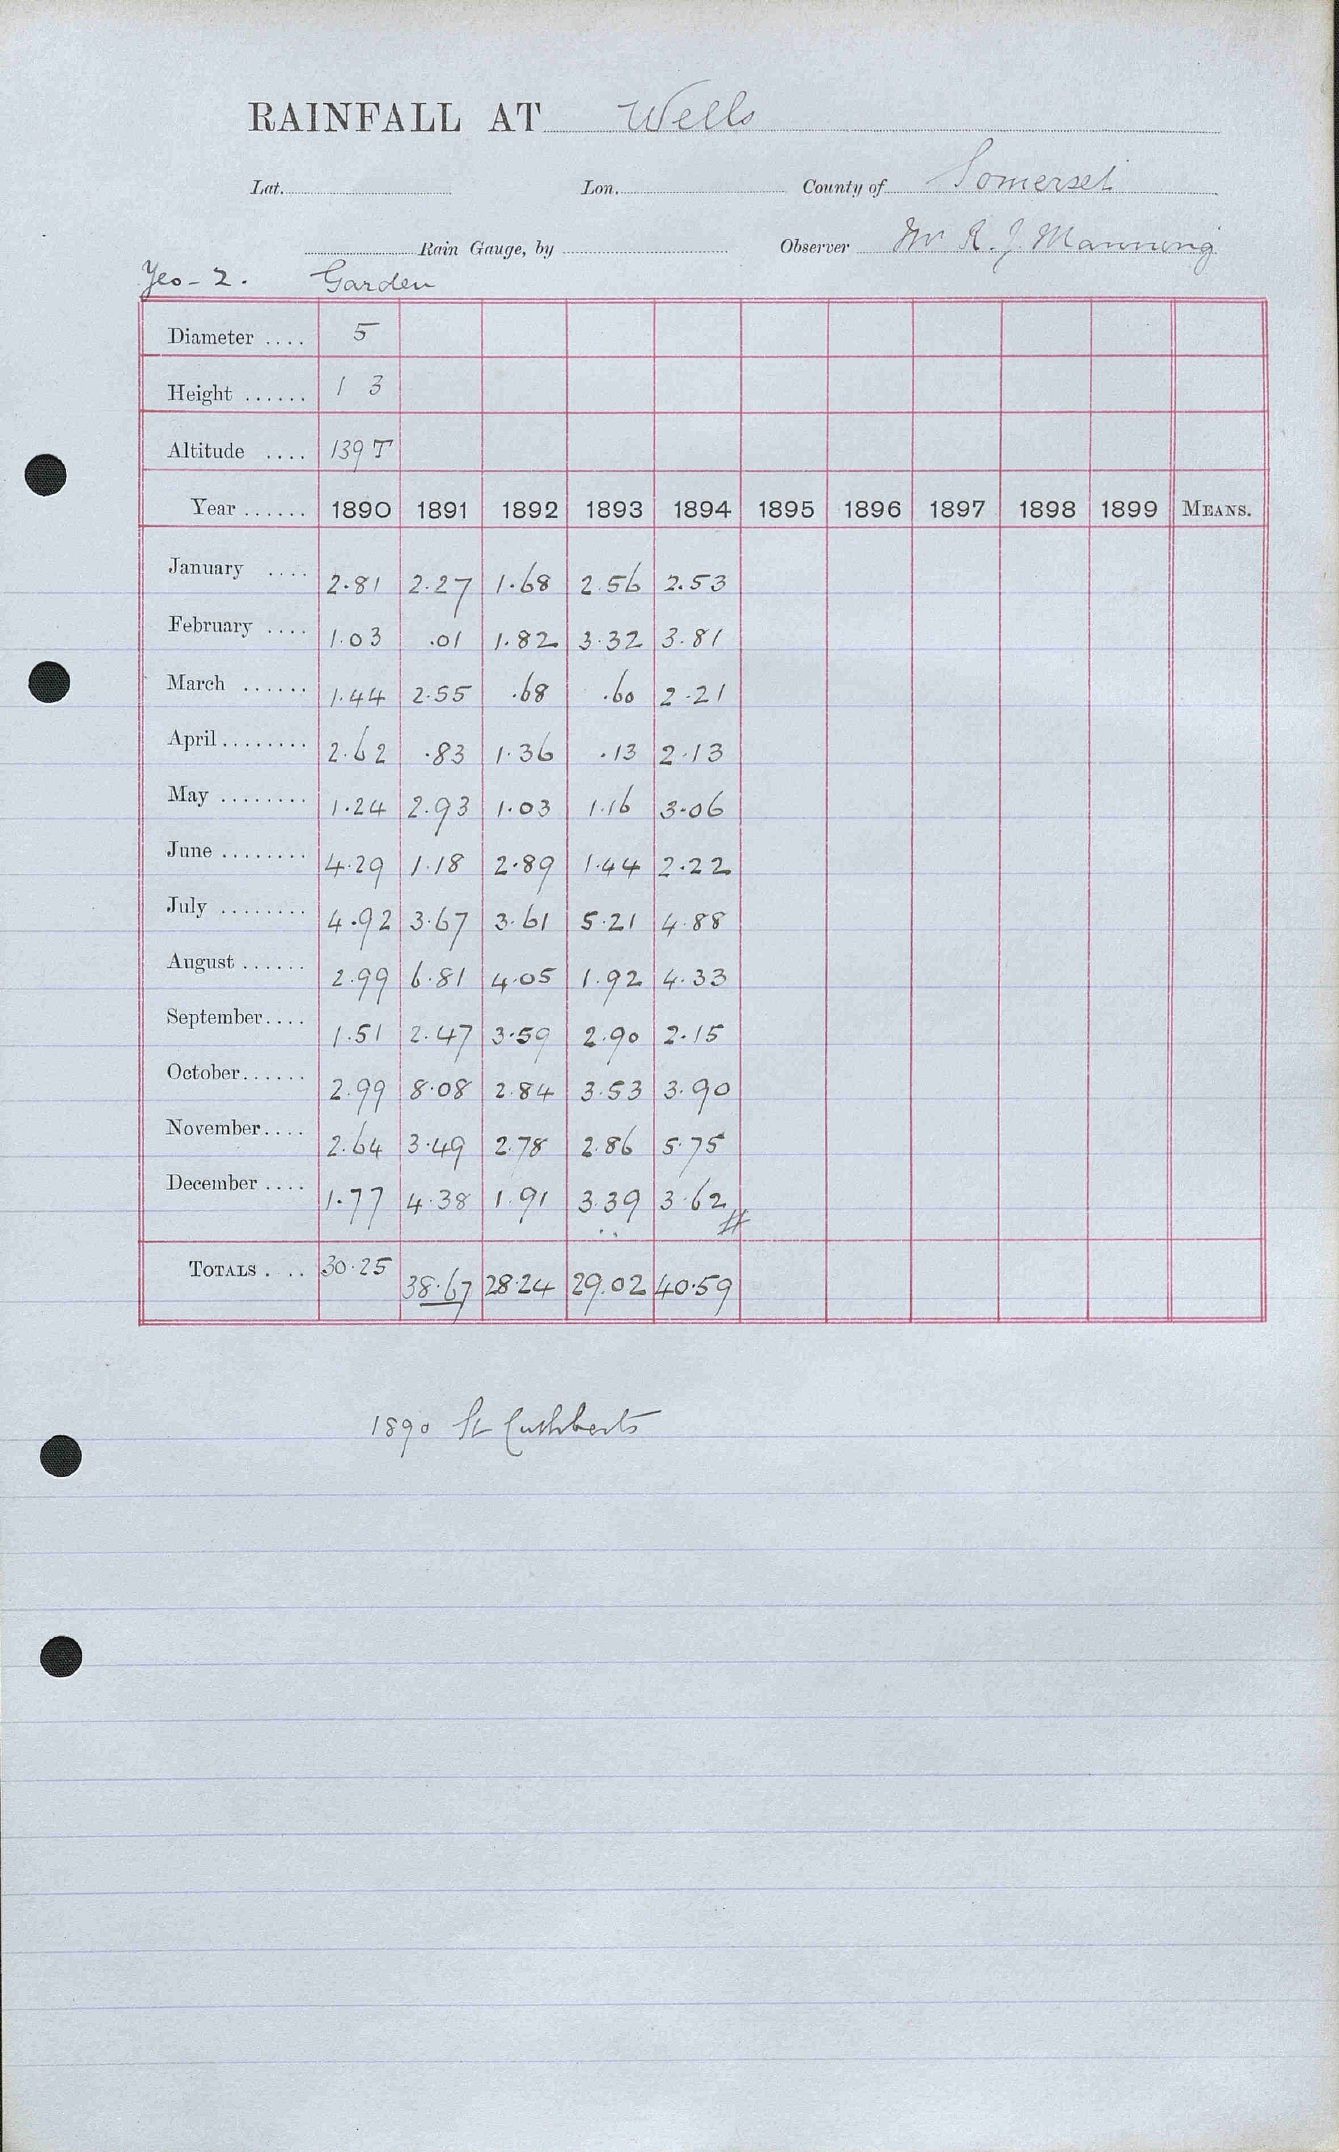 RAINFALL AT Wells
Lat. Lon. County of Somerset
Rain Gauge, by Observer Mr R. J. Manning
Yeo - 2. Garden
Diameter .... 5
Height ...... 1 3
Altitude .... 139 T
Year ...... 1890 1891 1892 1893 1894 1895 1896 1897 1898 1899 MEANS.
January .... 2.81 2.27 1.68 2.56 2.53
February .... 1.03 .01 1.82 3.32 3.81
March ...... 1.44 2.55 .68 .60 2.21
April ........ 2.62 .83 1.36 .13 2.13
May ........ 1.24 2.93 1.03 1.16 3.06
June ........ 4.29 1.18 2.89 1.44 2.22
July ........ 4.92 3.67 3.61 5.21 4.88
August ...... 2.99 6.81 4.05 1.92 4.33
September.... 1.51 2.47 3.59 2.90 2.15
October...... 2.99 8.08 2.84 3.53 3.90
November.... 2.64 3.49 2.78 2.86 5.75
December .... 1.77 4.38 1.91 3.39 3.62
TOTALS . .. 30.25 38.67 28.24 29.02 40.59
1890 St Cuthberts